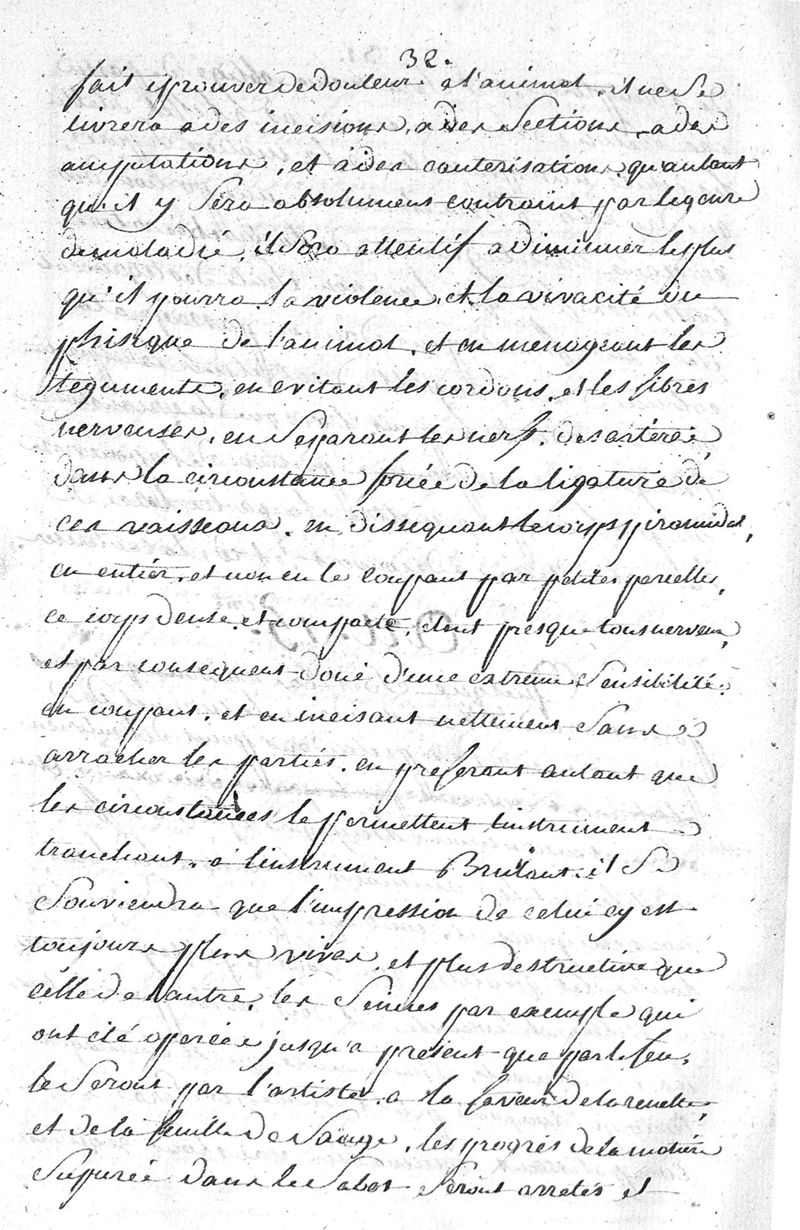 32.
fait eprouver de douleur a l'animal. il ne se
livrera a des incisions, a des sections, a des
amputations, et a des cauterisations qu'autant
qu'il y sera absolument contraint par le genre
de maladie, il sera attentif a diminuer le plus
qu'il pourra la violence et la vivacité du
phisique de l'animal, et en menageant les
teguments, en evitant les cordons, et les fibres
nerveuses, en separant les nerfs, des arteres
dans la circonstance forcée de la ligature de
ces vaisseaux, en dissequant le corps piramidal,
en entier, et non en le coupant par petites parcelles,
ce corps dense, et compacte, etant presque tous nerveux,
et par consequent doué d'une extreme sensibilité,
en coupant, et en incisant nettement sans
arracher les parties, en preferant autant que
les circonstances le permettent linstrument
tranchant, a linstrument Brulant, il se
souviendra que l'impression de celui cy est
toujours plus vives, et plus destructive que
celle de lautre, les seimes par exemple qui
ont été opereés jusqu'a present que par le feu,
le seront par l'artiste, a la faveur de la renette,
et de la feuille de sauge, les progrés de la matiere
supureé dans le sabot seront arretés et